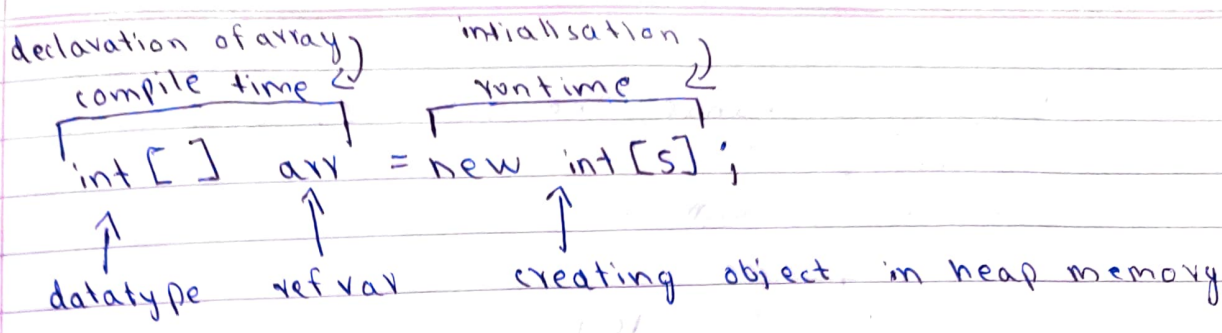 declaration of array intialisation
compile time runtime
int [ ] arr = new int [5];
datatype ref var creating object in heap memory